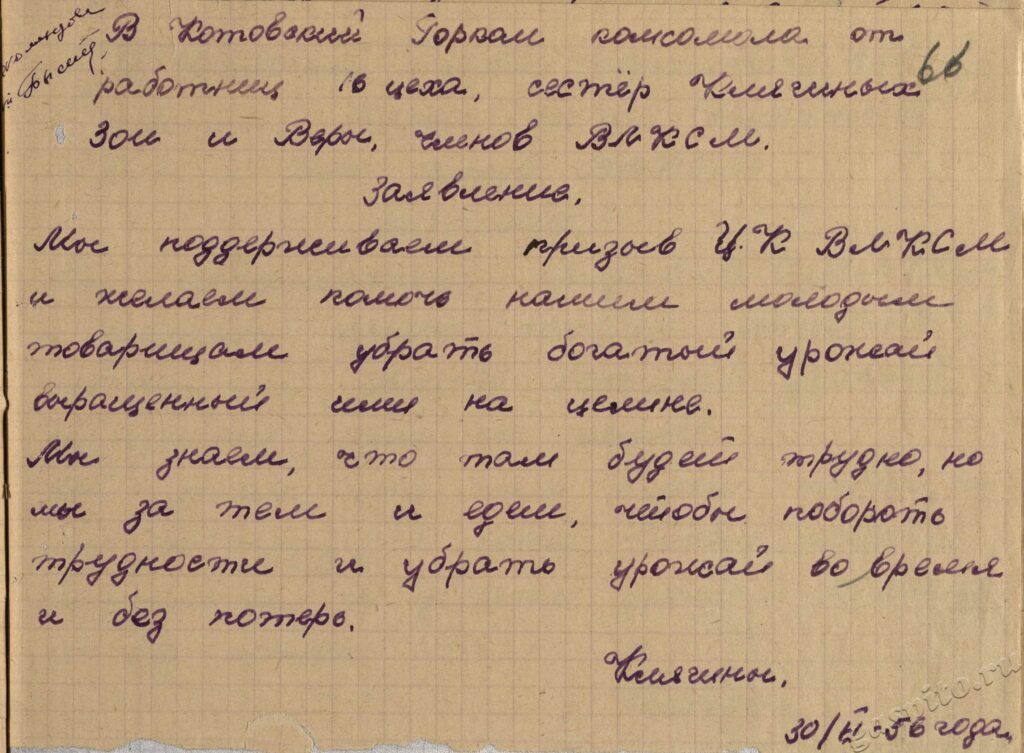 В Котовский Горком комсомола от
66
работниц 16 цеха, сестёр Клячиных
Зои и Веры, членов ВЛКСМ.
Заявление.
Мы поддерживаем призыв Ц.К ВЛКСМ
и желаем помочь нашим молодым
товарищам убрать богатый урожай
выращенный ими на целине.
Мы знаем, что там будет трудно, но
мы за тем и едем, чтобы побороть
трудности и убрать урожай во время
и без потерь.
Клячины.
30/ -56 года.